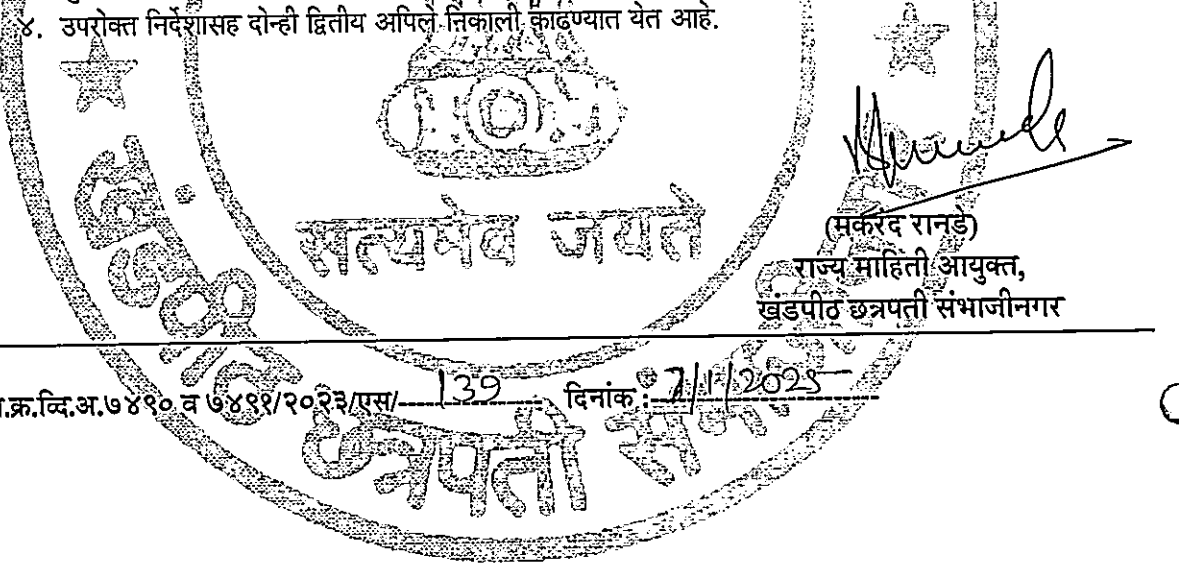 ४. उपरोक्त निर्देशासह दोन्ही द्वितीय अपिले निकाली काढण्यात येत आहे.
सत्यमेव जयते
(मकरंद रानडे)
राज्य माहिती आयुक्त,
खंडपीठ छत्रपती संभाजीनगर
.क्र.व्दि.अ.७४९० व ७४९१/२०२३/एस/ 139 दिनांक : 7/1/2025
खंडपीठ छत्रपती